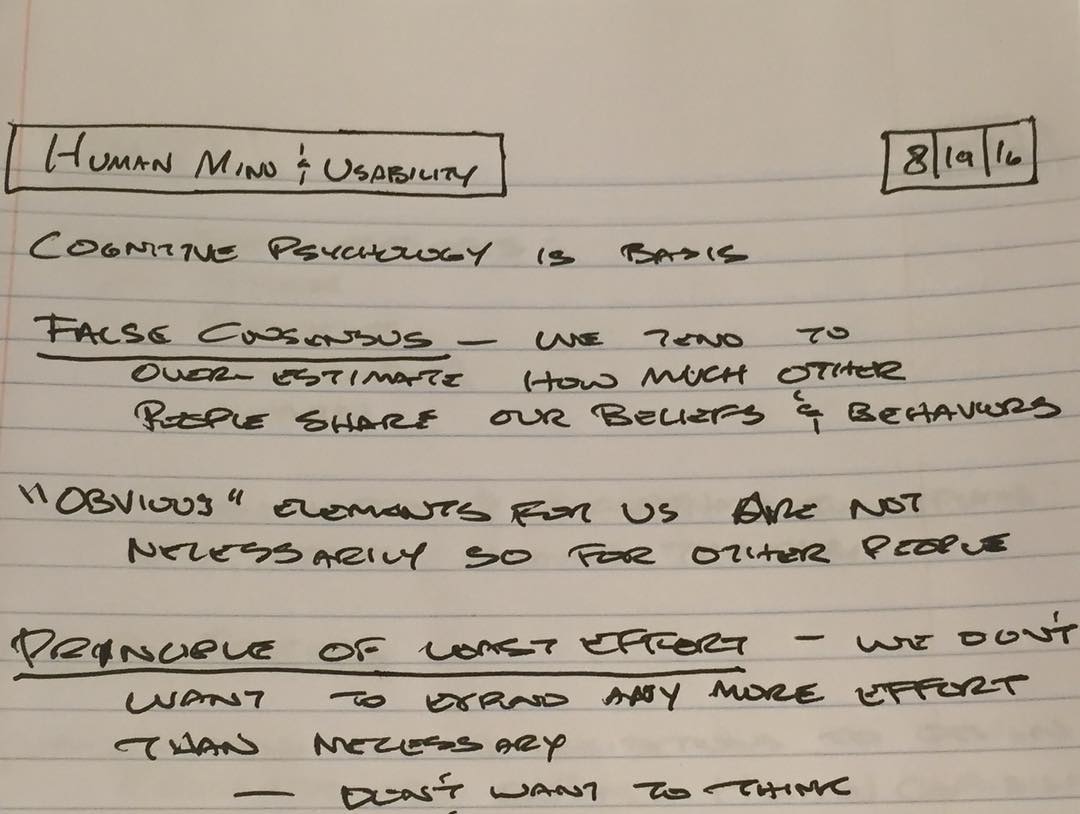 HUMAN MIND & USABILITY
8/19/16
COGNITIVE PSYCHOLOGY IS BASIS
FALSE CONSENSUS — WE TEND TO
OVER-ESTIMATE HOW MUCH OTHER
PEOPLE SHARE OUR BELIEFS & BEHAVIORS
"OBVIOUS" ELEMENTS FOR US ARE NOT
NECESSARILY SO FOR OTHER PEOPLE
PRINCIPLE OF LEAST EFFORT — WE DON'T
WANT TO EXPEND ANY MORE EFFORT
THAN NECESSARY
— DON'T WANT TO THINK